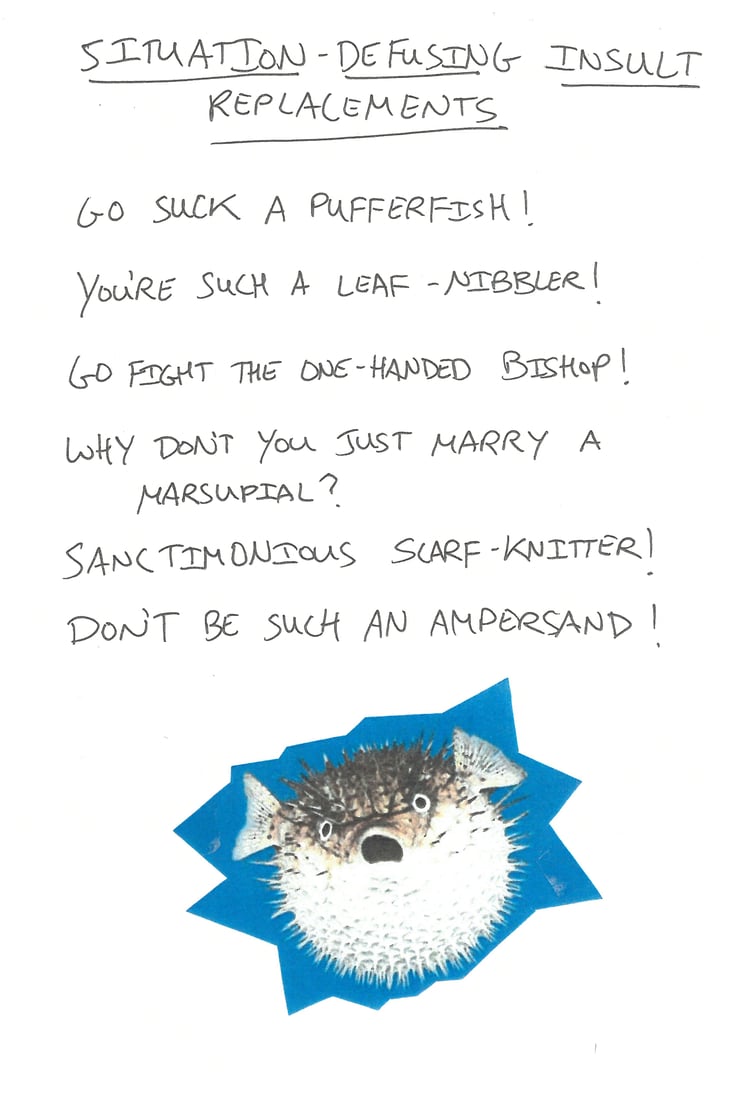 SITUATION-DEFUSING INSULT
REPLACEMENTS
GO SUCK A PUFFERFISH!
YOU'RE SUCH A LEAF-NIBBLER!
GO FIGHT THE ONE-HANDED BISHOP!
WHY DON'T YOU JUST MARRY A
MARSUPIAL?
SANCTIMONIOUS SCARF-KNITTER!
DON'T BE SUCH AN AMPERSAND!